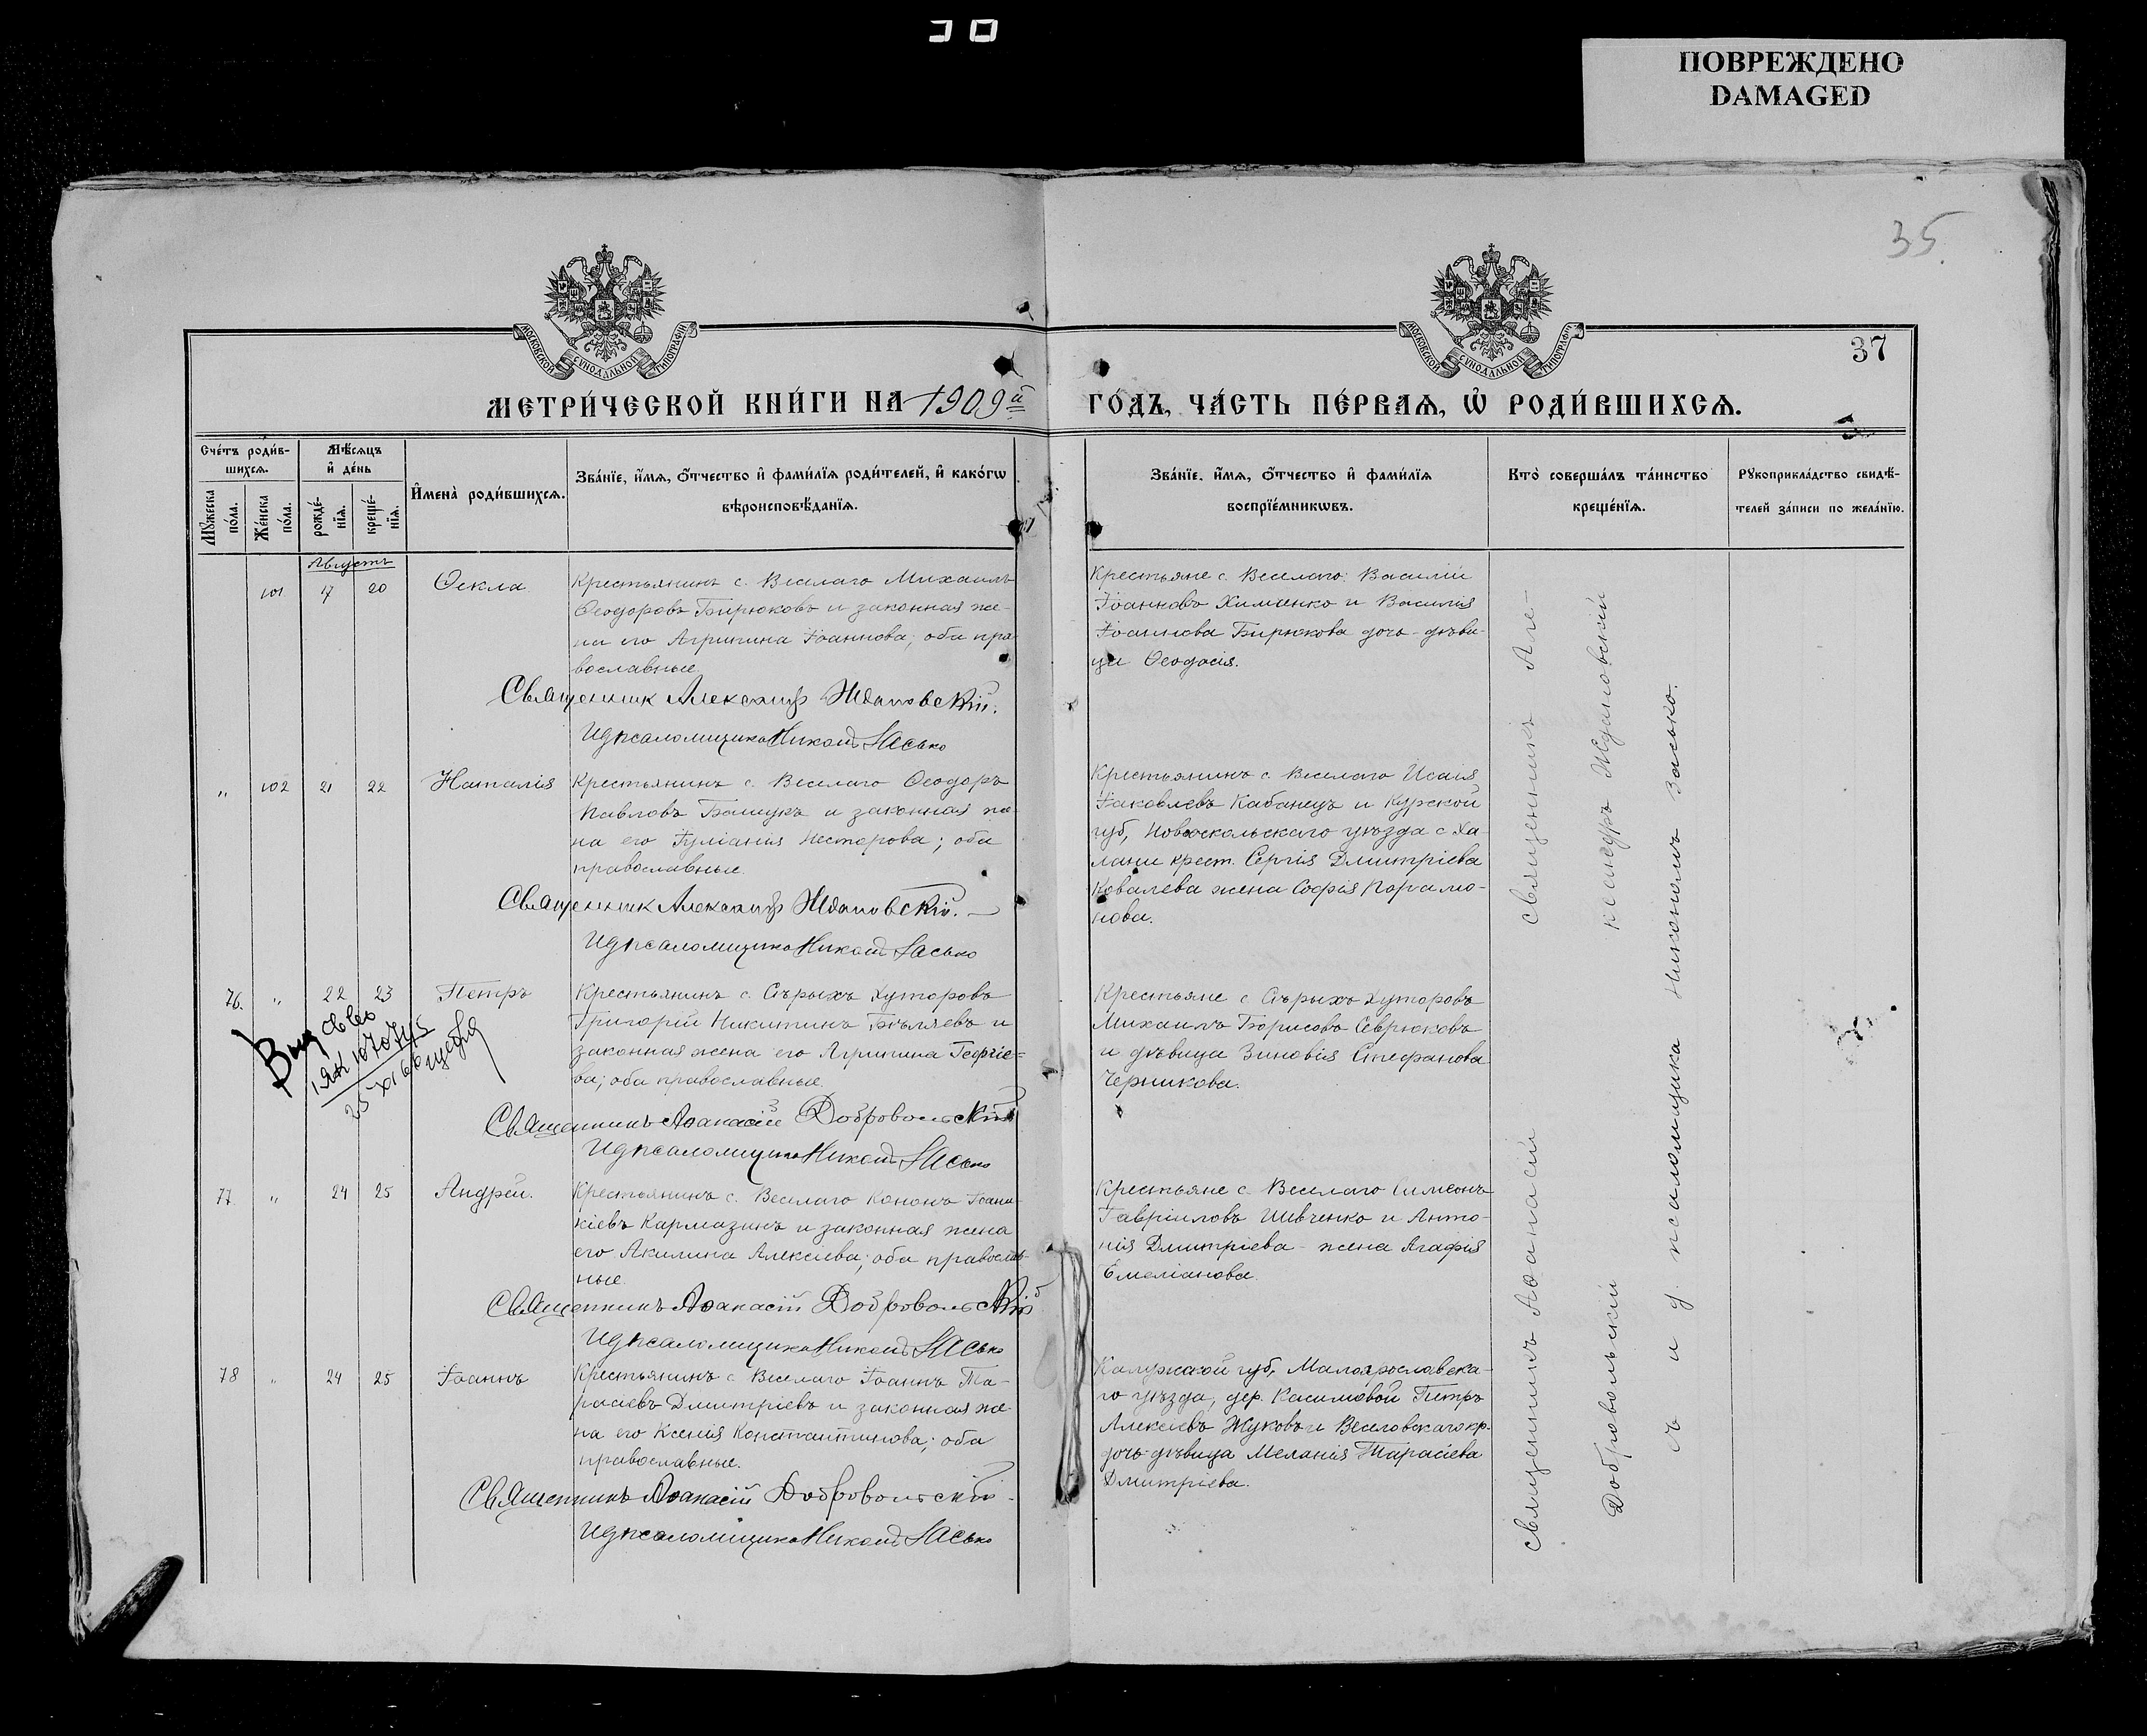 ПОВРЕЖДЕНО
DAMAGED
35.
37
МОСКОВСКОЙ СѴНОДАЛЬНОЙ ТИПОГРАФІИ
МОСКОВСКОЙ СѴНОДАЛЬНОЙ ТИПОГРАФІИ
МЕТРИ́ЧЕСКОЙ КНИ́ГИ НА 1909й ГО́ДЪ, ЧА́СТЬ ПЕ́РВАѦ, Ѡ҆ РОДИ́ВШИХСѦ.
Сче́тъ роди́в-
шихсѧ.
Мꙋ́жеска по́ла.
Же́нска по́ла.
Мѣ́сѧцъ и҆ де́нь
рожде́-
нїѧ.
креще́-
нїѧ.
И҆мена̀ роди́вшихсѧ.
Зва́нїе, и҆́мѧ, ѻ҆́тчество и҆ фами́лїѧ роди́телей, и҆ како́гѡ
вѣроисповѣ́данїѧ.
Зва́нїе, и҆́мѧ, ѻ҆́тчество и҆ фами́лїѧ
воспрїе́мникѡвъ.
Кто̀ соверша́лъ та́инство
креще́нїѧ.
Рꙋкоприкла́дство свидѣ́-
телей за́писи по жела́нїю.
Августъ
101 17 20 Ѳекла
Крестьянинъ с. Веселаго Михаилъ
Ѳеодоровъ Бирюковъ и законная же-
на его Агрипина Іоаннова; оба пра-
вославные.
Священник Александр Ждановскій.
И д псаломщика Никонъ Засько
Крестьяне с. Веселаго: Василій
Іоанновъ Хименко и Василія
Іоаннова Бирюкова дочь-дѣви-
ца Ѳеодосія.
" 102 21 22 Наталія
Крестьянинъ с. Веселаго Ѳеодоръ
Павловъ Бащукъ и законная же-
на его Іуліанія Нестерова; оба
православные.
Священник Александр Ждановскій.
И д псаломщика Никонъ Засько
Крестьянинъ с. Веселаго Исаія
Іаковлевъ Кабанецъ и Курской
губ, Новооскольскаго уѣзда с Ха-
лани крест. Сергія Дмитріева
Ковалева жена Софія Парамо-
нова.
76. " 22 23 Петръ
Крестьянинъ с. Сѣрыхъ Хуторовъ
Григорій Никитинъ Бѣляевъ и
законная жена его Агрипина Георгіе-
ва; оба православные.
Священникъ Аѳанасій Добровольскій
И д псаломщика Никонъ Засько
Крестьяне с Сѣрыхъ Хуторовъ
Михаилъ Борисовъ Севрюковъ
и дѣвица Зиновія Стефанова
Черникова.
77 " 24 25 Андрей.
Крестьянинъ с. Веселаго Кононъ Іоани-
кіевъ Кармазинъ и законная жена
его Акилина Алексіева; оба православ-
ные.
Священникъ Аѳанасій Добровольскій
И д псаломщика Никонъ Засько
Крестьяне с. Веселаго Симеонъ
Гавріиловъ Шевченко и Анто-
нія Дмитріева - жена Агафія
Емеліанова.
78 " 24 25 Іоаннъ
Крестьянинъ с Веселаго Іоаннъ Та-
расіевъ Дмитріевъ и законная же-
на его Ксенія Константинова; оба
православные.
Священникъ Аѳанасій Добровольскій
И д псаломщика Никонъ Засько
Калужской губ, Малоярославска-
го уѣзда, дер. Касимовой Петръ
Алексіевъ Жуковъ и Веселовскаго кр.
дочь-дѣвица Меланія Тарасіева
Дмитріева.
Священникъ Але-
ксандръ Ждановскій
Священникъ Аѳанасій
Добровольскій
съ и д. псаломщика Никономъ Засько.